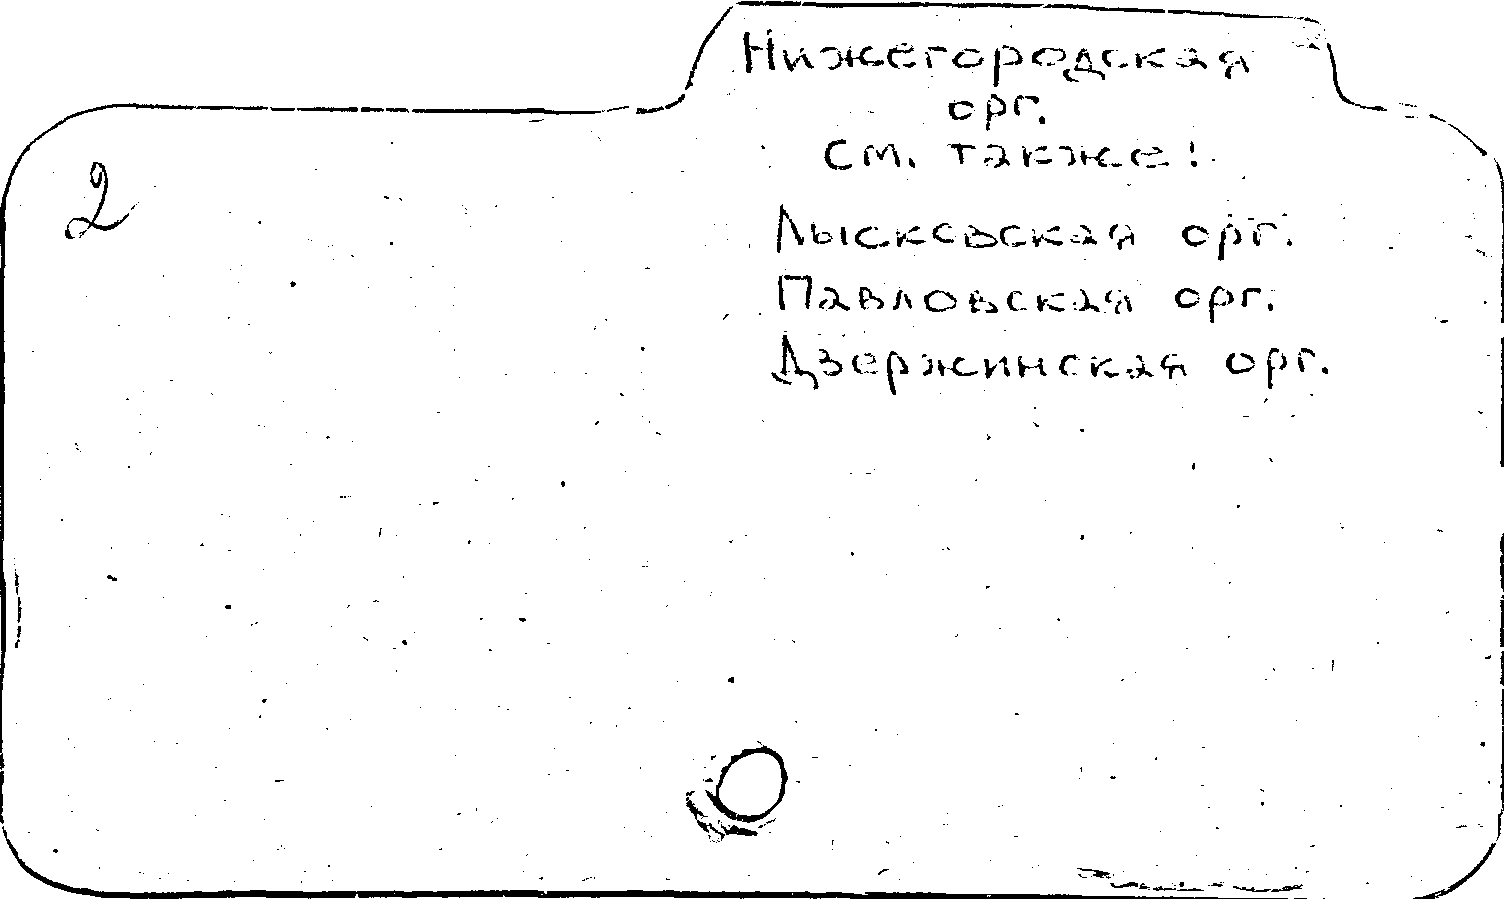 Нижегородская
орг.
см. также:
2
Лысковская орг.
Павловская орг.
Дзержинская орг.